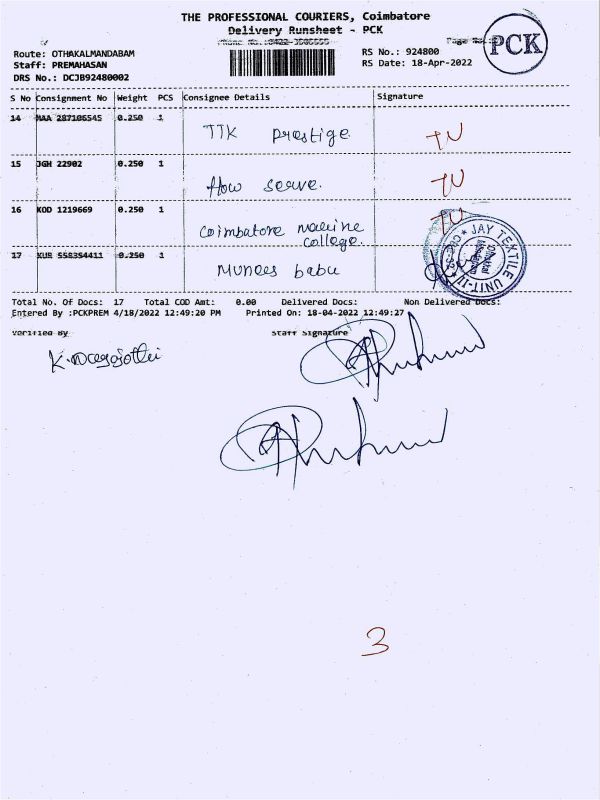 THE PROFESSIONAL COURIERS, Coimbatore
Delivery Runsheet - PCK
PCK
Route: OTHAKALMANDABAM
RS No.: 924800
Staff: PREMAHASAN
RS Date: 18-Apr-2022
DRS No.: DCJB92480002
S No Consignment No Weight PCS Consignee Details Signature
14 MAA 287106545 0.250 1
TTK Prestige. TU
15 JGH 22902 0.250 1
flow serve. TU
16 KOD 1219669 0.250 1 TU
Coimbatore marine
College.
JAY TEXTILE UNIT-11
17 KUR 558354411 0.250 1
Munees babu
Total No. Of Docs: 17 Total COD Amt: 0.00 Delivered Docs: Non Delivered Docs:
Entered By :PCKPREM 4/18/2022 12:49:20 PM Printed On: 18-04-2022 12:49:27
Verified By Staff Signature
3